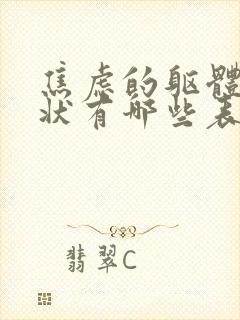 焦虑的躯體
狀有哪些表
翡翠C